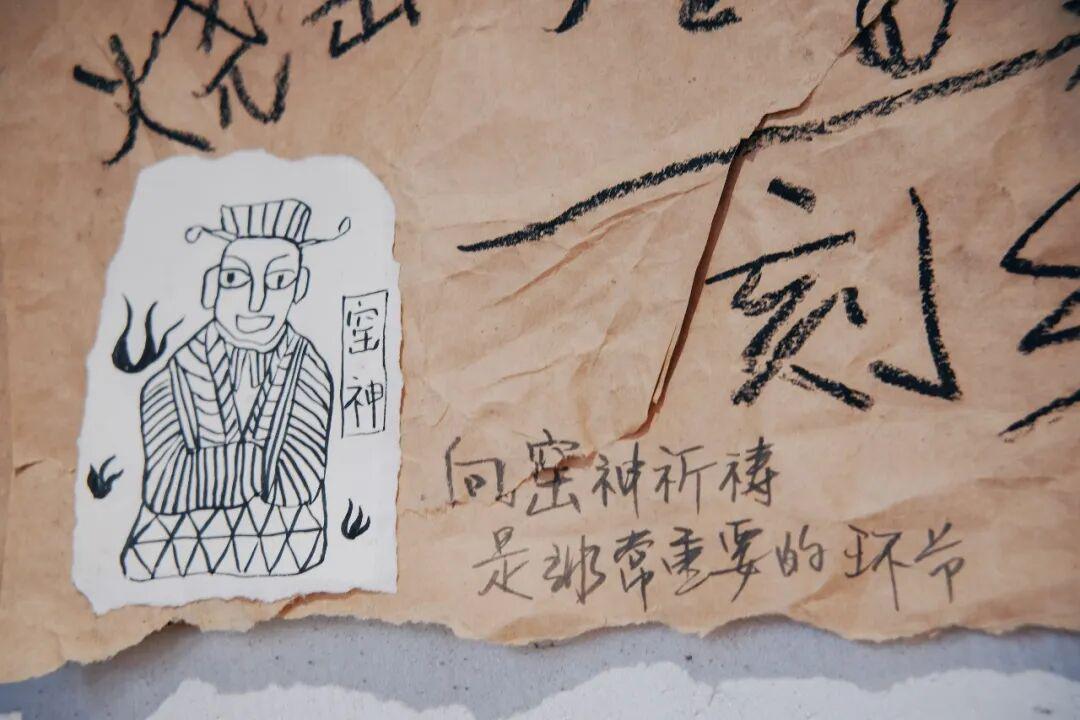 烧出
一刻
窑神
向窑神祈祷
是非常重要的环节